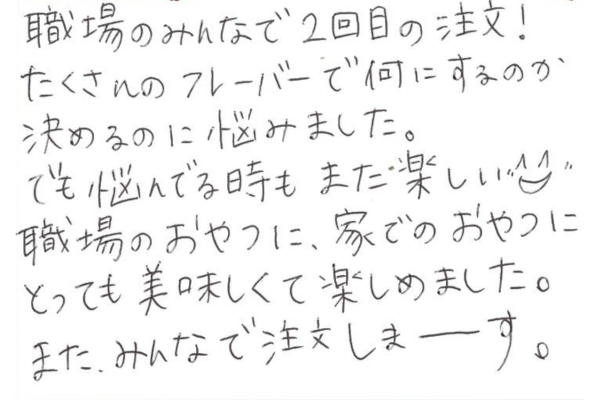 職場のみんなで2回目の注文!
たくさんのフレーバーで何にするのか
決めるのに悩みました。
でも悩んでる時もまた楽しい
職場のおやつに、家でのおやつに
とっても美味しくて楽しめました。
また、みんなで注文しまーす。